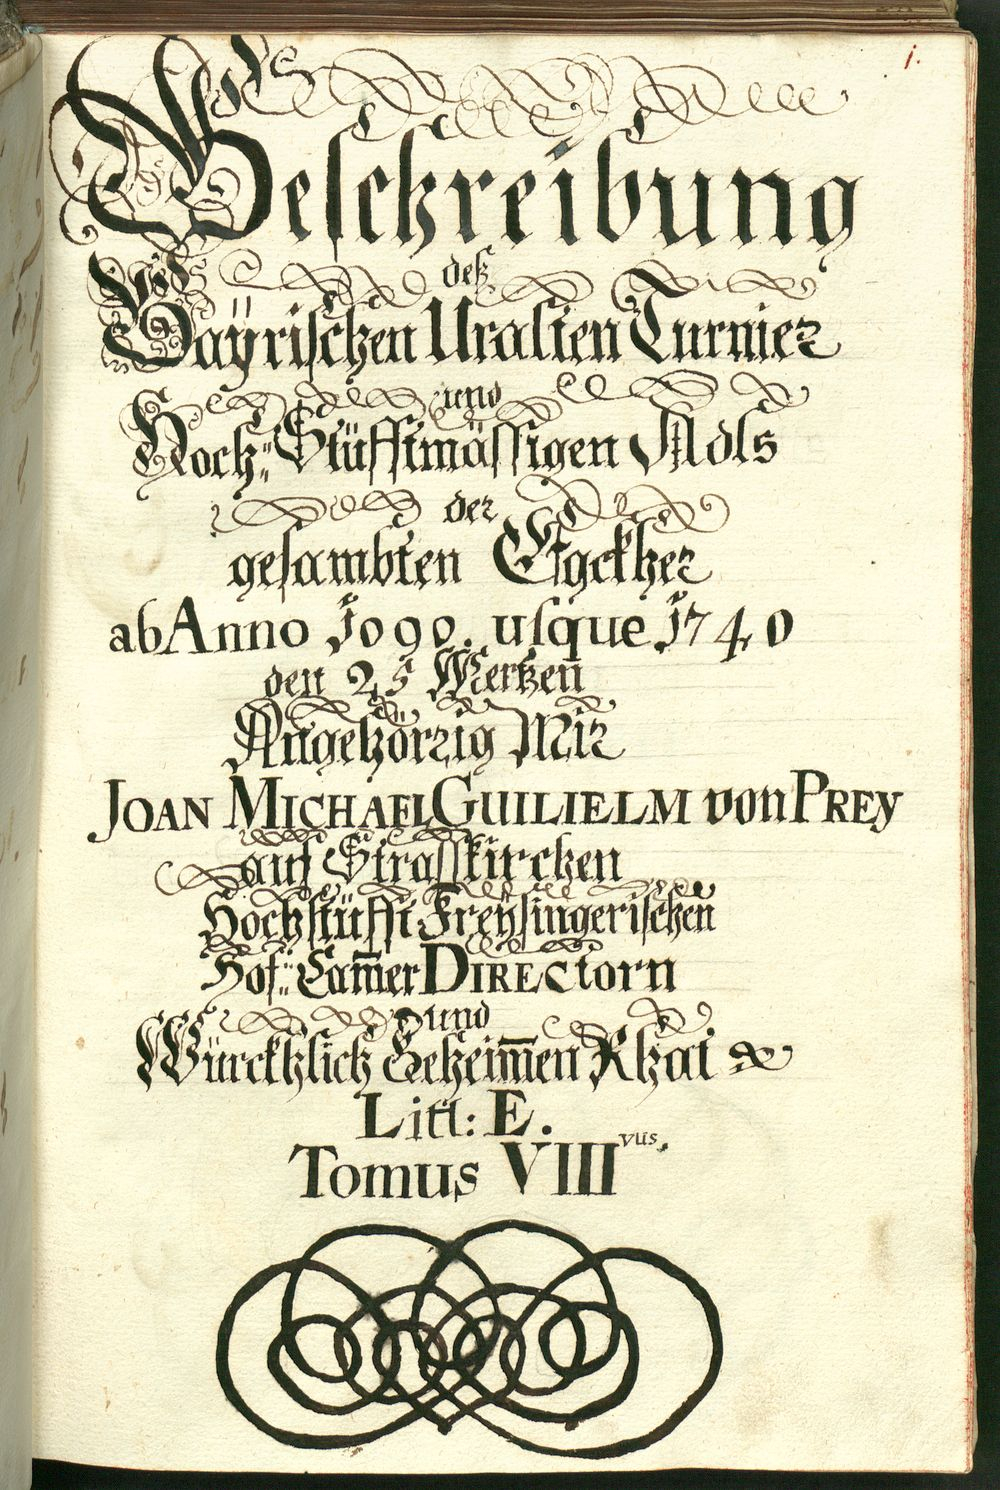 1.
Beschreibung
deß
Baÿrischen Uralten Turnier
und
Hoch: Stüfftmässigen Adls
der
gesambten
ab Anno 1090. usque 1740
den 25 Mertzen
Angehörig Mir
JOAN MICHAEL GUILIELM von PREY
auf Strasskirchen
Hochstüfft Freysingerischen
Hof: Cam̄er DIRECtorn
und
Würckhlich Geheim̄en Rhat
Litt: E.
Tomus VIII vus.